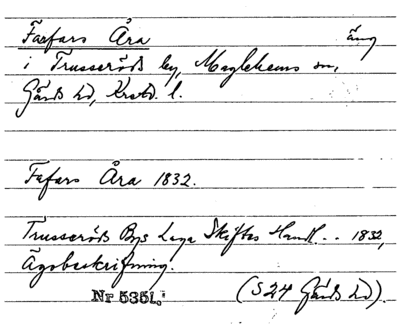 Farfars Åra äng
i Trusseröds by, Maglehems sn,
Gärds hd, Krstd. l.
Fafars Åra 1832.
Trusseröds Bys Laga Skiftes Handl. .. 1832,
Ägobeskrifning.
Nr 5351. (S 24 Gärds hd).